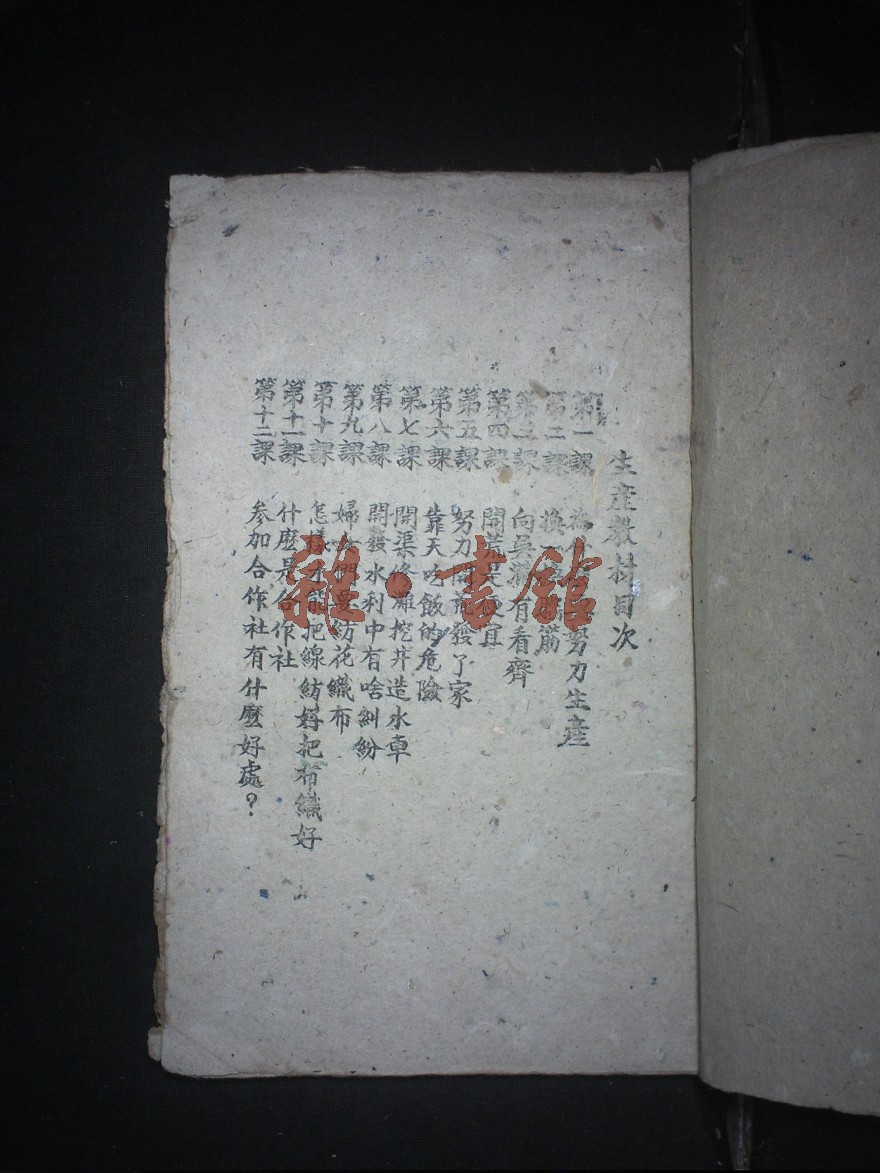 生產教材目次
第一課 為什 努力生產
第二課 換 腦筋
第三課 向吳滿有看齊
第四課 開荒 便宜
第五課 努力開荒發了家
第六課 靠天吃飯的危險
第七課 開渠修灘挖井造水車
第八課 開發水利中有啥糾紛
第九課 婦女們要紡花織布
第十課 怎樣才能把線紡好把布織好
第十一課 什麼是合作社
第十二課 參加合作社有什麼好處？
雜·書館